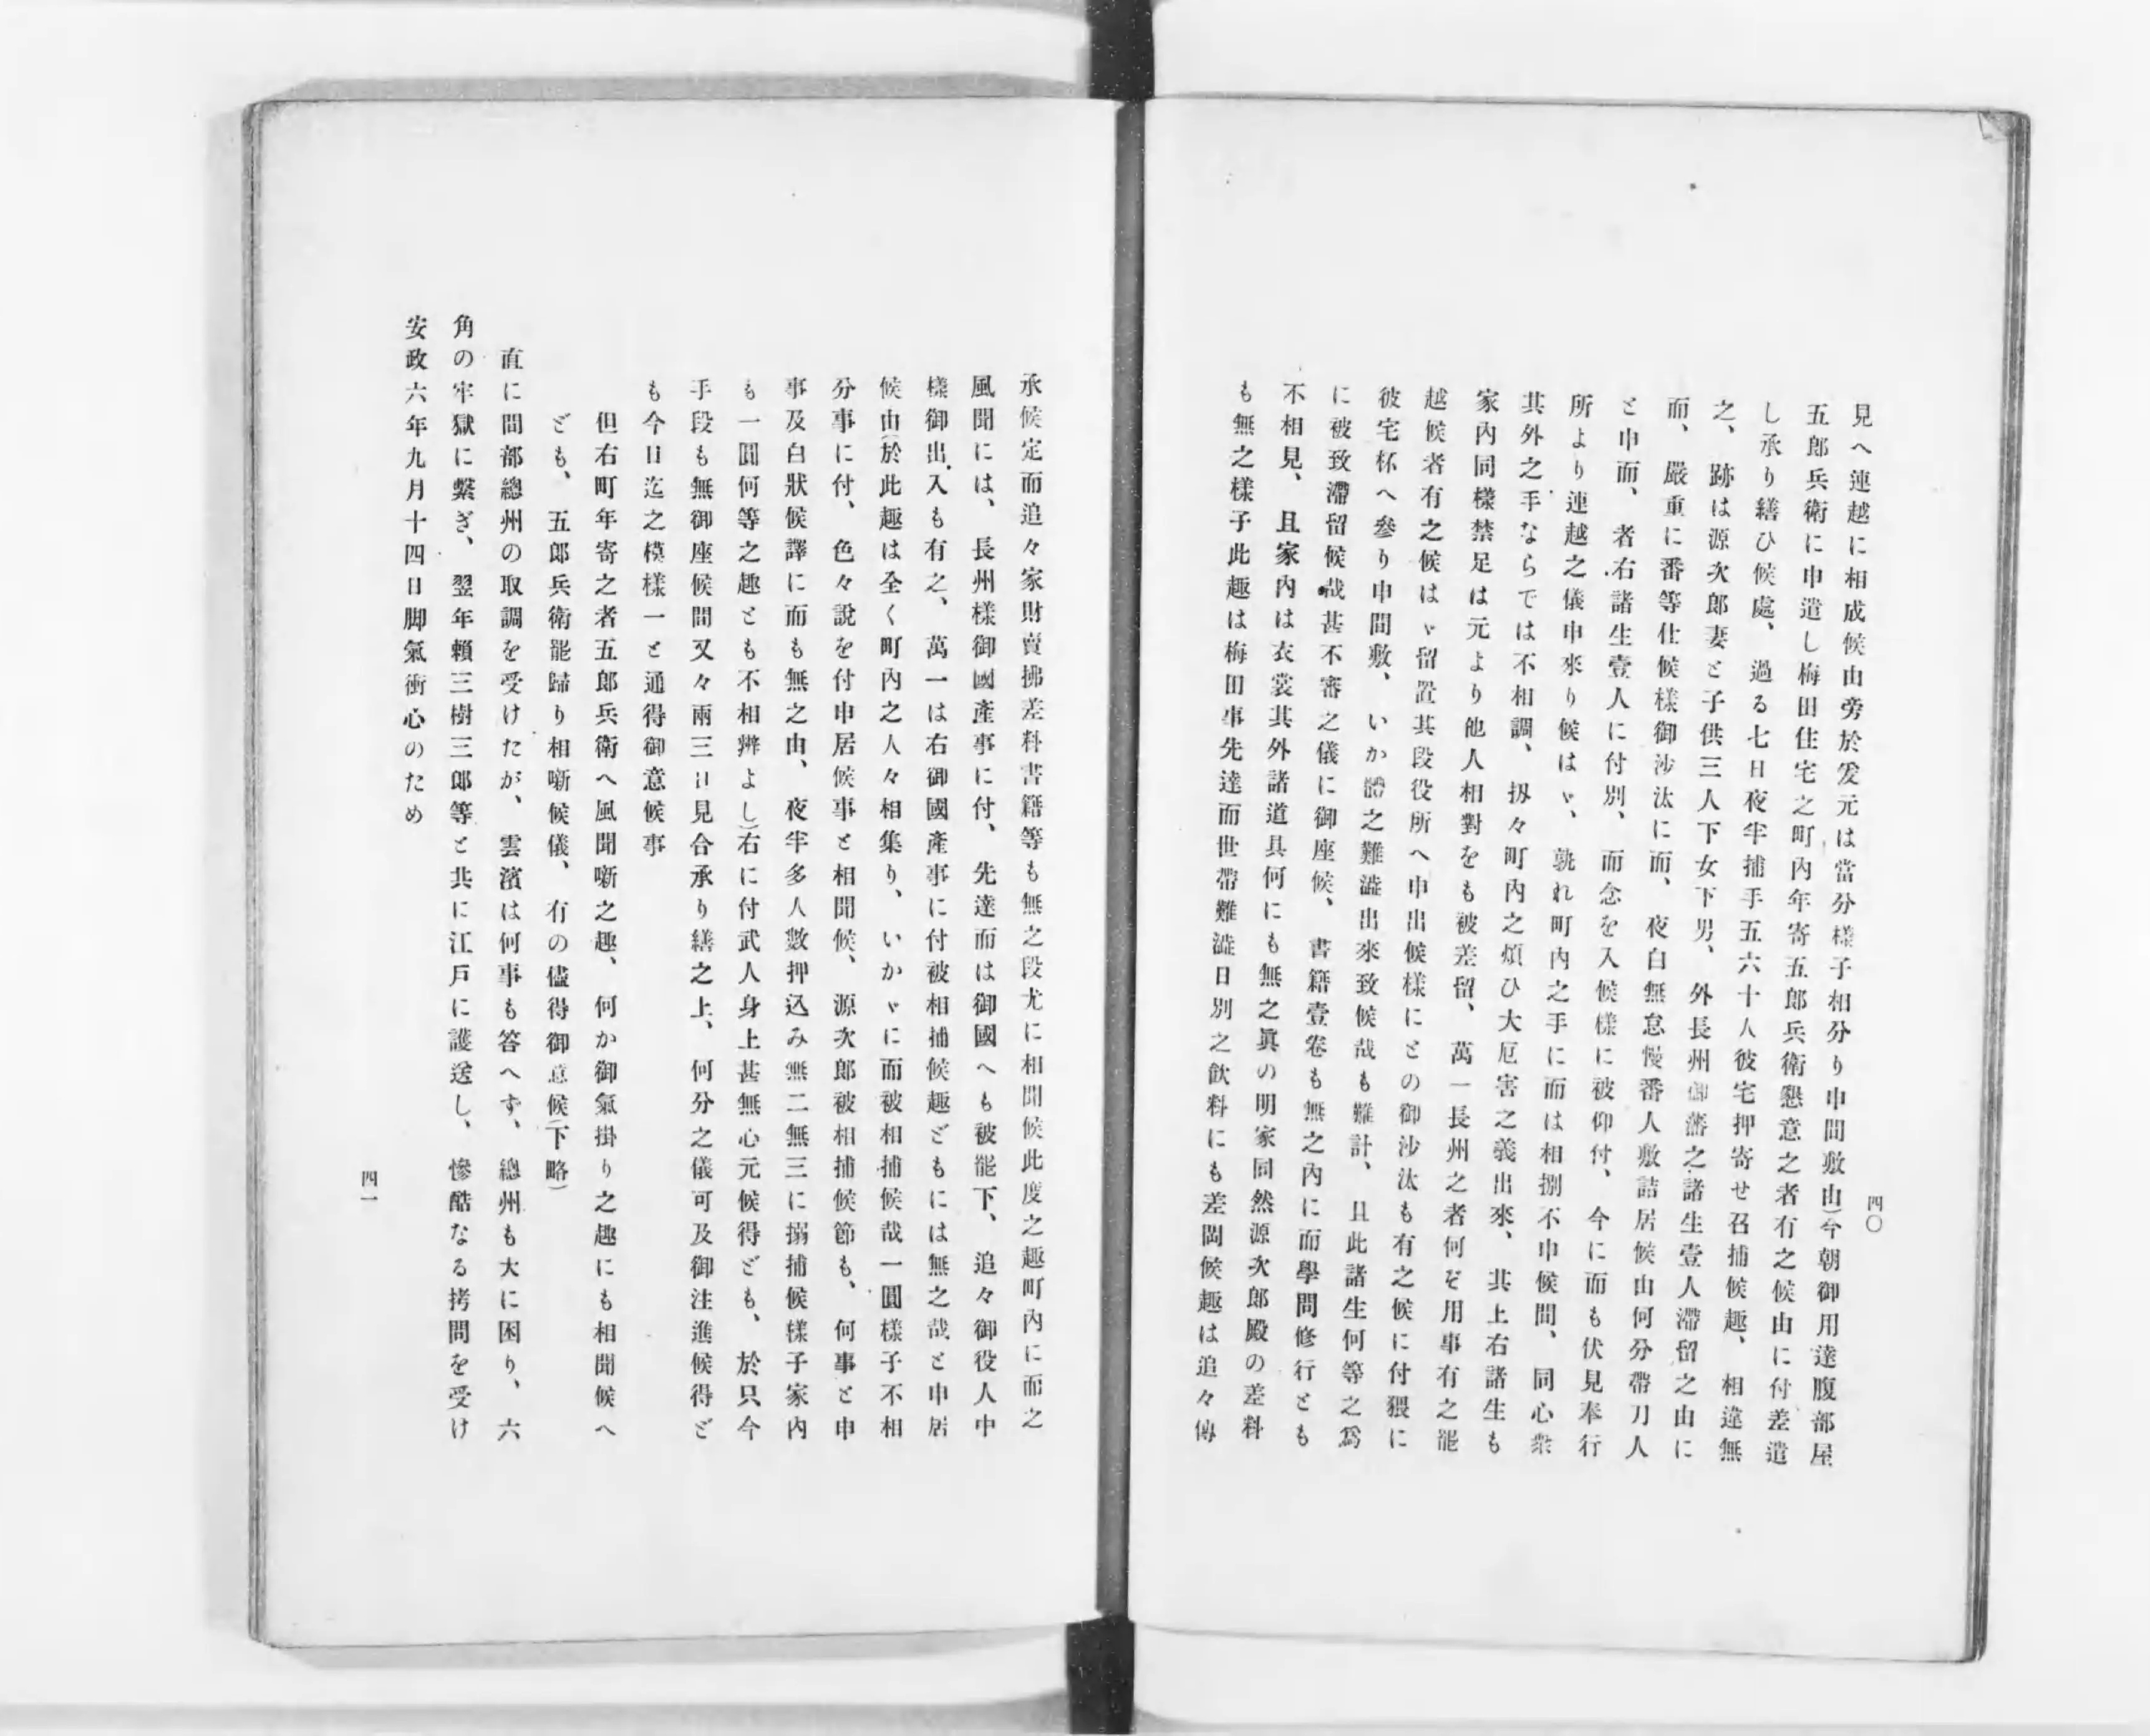 四〇
見へ連越に相成候由旁於爰元は當分樣子相分り申間敷由)今朝御用達腹部屋
五郎兵衛に申遣し梅田住宅之町內年寄五郎兵衛懇意之者有之候由に付差遣
し承り繕ひ候處、過る七日夜半捕手五六十人彼宅押寄せ召捕候趣、相違無
之、跡は源次郎妻と子供三人下女下男、外長州御藩之諸生壹人滯留之由に
而、嚴重に番等仕候樣御沙汰に而、夜白無怠慢番人敷詰居候由何分帶刀人
と申而、者右諸生壹人に付別、而念を入候樣に被仰付、今に而も伏見奉行
所より連越之儀申來り候はヾ、孰れ町內之手に而は相捌不申候間、同心衆
其外之手ならでは不相調、扨々町內之煩ひ大厄害之義出來、其上右諸生も
家內同樣禁足は元より他人相對をも被差留、萬一長州之者何ぞ用事有之罷
越候者有之候はヾ留置其段役所へ申出候樣にとの御沙汰も有之候に付猥に
彼宅杯へ參り申間敷、いか體之難澁出來致候哉も難計、且此諸生何等之爲
に被致滯留候哉甚不審之儀に御座候、書籍壹卷も無之內に而學問修行とも
不相見、且家內は衣裳其外諸道具何にも無之眞の明家同然源次郎殿の差料
も無之樣子此趣は梅田事先達而世帶難澁日別之飮料にも差閊候趣は追々傳
承候定而追々家財賣拂差料書籍等も無之段尤に相聞候此度之趣町內に而之
風聞には、長州樣御國產事に付、先達而は御國へも被罷下、追々御役人中
樣御出入も有之、萬一は右御國產事に付被相捕候趣どもには無之哉と申居
候由(於此趣は全く町內之人々相集り、いかヾに而被相捕候哉一圓樣子不相
分事に付、色々說を付申居候事と相聞候、源次郎被相捕候節も、何事と申
事及白狀候譯に而も無之由、夜半多人數押込み無二無三に搦捕候樣子家內
も一圓何等之趣とも不相辨よし)右に付武人身上甚無心元候得ども、於只今
手段も無御座候間又々兩三日見合承り繕之上、何分之儀可及御注進候得ど
も今日迄之模樣一と通得御意候事
但右町年寄之者五郎兵衛へ風聞噺之趣、何か御氣掛り之趣にも相聞候へ
ども、五郎兵衛罷歸り相噺候儀、有の儘得御意候(下略)
直に間部總州の取調を受けたが、雲濱は何事も答へず、總州も大に困り、六
角の牢獄に繫ぎ、翌年賴三樹三郎等と共に江戶に護送し、慘酷なる拷問を受け
安政六年九月十四日脚氣衝心のため
四一